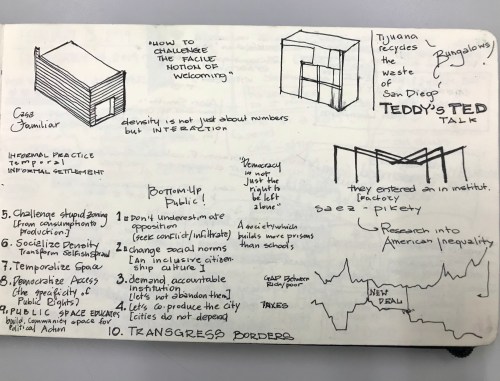 "HOW TO
CHALLENGE
THE FACILE
NOTION OF
Welcoming"
Tijuana
recycles
the
waste
of
San Diego
Bungalows
TEDDY'S TED
TALK
Casa
Familiar
density is not just about numbers
but INTERACTION
INFORMAL PRACTICE
Temporal
INFORMAL SETTLEMENT
Bottom-Up
Public!
"Democracy
is not
just the
right to
be left
alone"
they entered an in institut.
[Factory
Saez - pikety
Research into
American Inequality
A society which
builds more prisons
than schools
1. Don't underestimate
opposition
(seek conflict/infiltrate)
2. change social norms
[An inclusive citizen-
ship culture]
3. demand accountable
institution
[let's not abandon them]
4. Let's co-produce the city
[cities do not depend]
5. Challenge stupid zoning
[From consumption to
production]
6. Socialize Density
Transform Selfish Sprawl
7. Temporalize Space
8. Democratize Access
[the specificity of
Public Rights]
9. PUBLIC SPACE EDUCATES
build, communicate space for
Political Action
10. TRANSGRESS BORDERS
GAP Between
Rich/poor
TAXES
NEW
DEAL